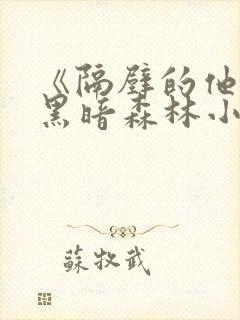 《隔壁的他
黑暗森林小
蘇牧武